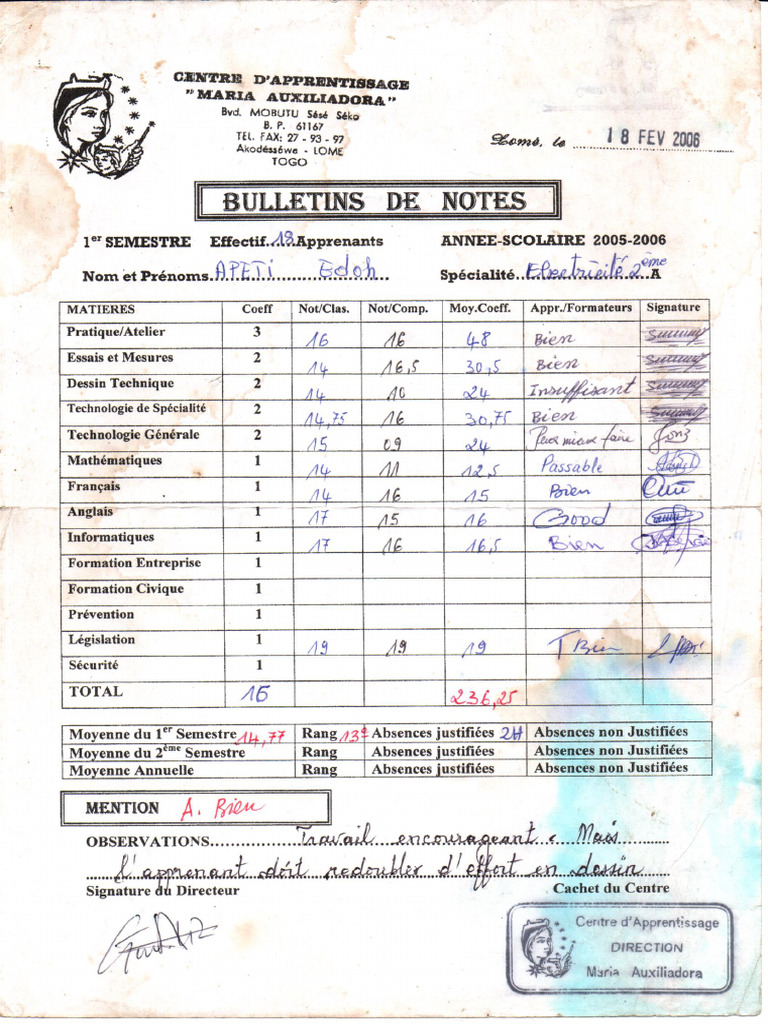 CENTRE D'APPRENTISSAGE
"MARIA AUXILIADORA"
Bvd. MOBUTU Sésé Séko
B. P. 61167
TEL. FAX: 27 - 93 - 97
Akodésséwe - LOME
TOGO
Lomé, le 18 FEV 2006
BULLETINS DE NOTES
1er SEMESTRE Effectif...18.Apprenants ANNEE-SCOLAIRE 2005-2006
Nom et Prénoms APETI Edoh Spécialité Electricité 2ème A
MATIERES Coeff Not/Clas. Not/Comp. Moy.Coeff. Appr./Formateurs Signature
Pratique/Atelier 3 16 16 48 Bien
Essais et Mesures 2 14 16,5 30,5 Bien
Dessin Technique 2 14 10 24 Insuffisant
Technologie de Spécialité 2 14,75 16 30,75 Bien
Technologie Générale 2 15 09 24 Peux mieux faire
Mathématiques 1 14 11 12,5 Passable
Français 1 14 16 15 Bien
Anglais 1 17 15 16 Good
Informatiques 1 17 16 16,5 Bien
Formation Entreprise 1
Formation Civique 1
Prévention 1
Législation 1 19 19 19 T Bien
Sécurité 1
TOTAL 16 236,25
Moyenne du 1er Semestre 14,77 Rang 13e Absences justifiées 2H Absences non Justifiées
Moyenne du 2ème Semestre Rang Absences justifiées Absences non Justifiées
Moyenne Annuelle Rang Absences justifiées Absences non Justifiées
MENTION A. Bien
OBSERVATIONS Travail encourageant. Mais
l'apprenant doit redoubler d'effort en dessin
Signature du Directeur Cachet du Centre
Centre d'Apprentissage
DIRECTION
Maria Auxiliadora